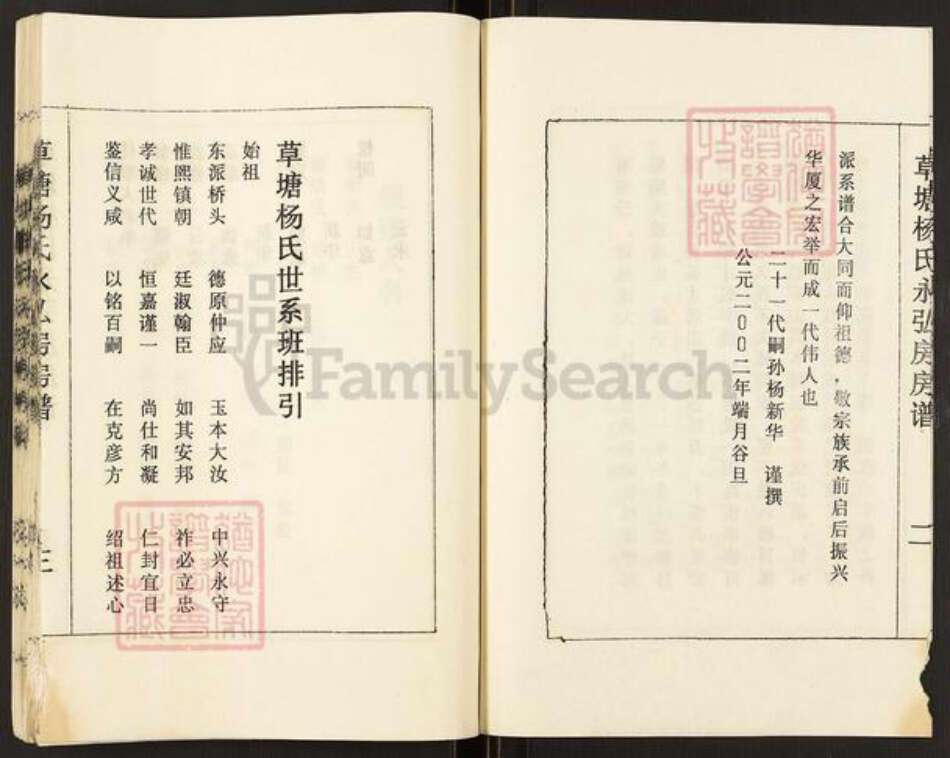 草塘杨氏永弘房房谱
二
派系谱合大同而仰祖德，敬宗族承前启后振兴
华厦之宏举而成一代伟人也
二十一代嗣孙杨新华 谨撰
公元二00二年端月谷旦
草塘杨氏世系班排引
始祖
东派桥头 德原仲应 玉本大汝 中兴永守
惟熙镇朝 廷淑翰臣 如其安邦 祚必立忠
孝诚世代 恒嘉谨一 尚仕和凝 仁封宜日
鉴信义咸 以铭百嗣 在克彦方 绍祖述心
草塘杨氏永弘房房谱
三
FamilySearch